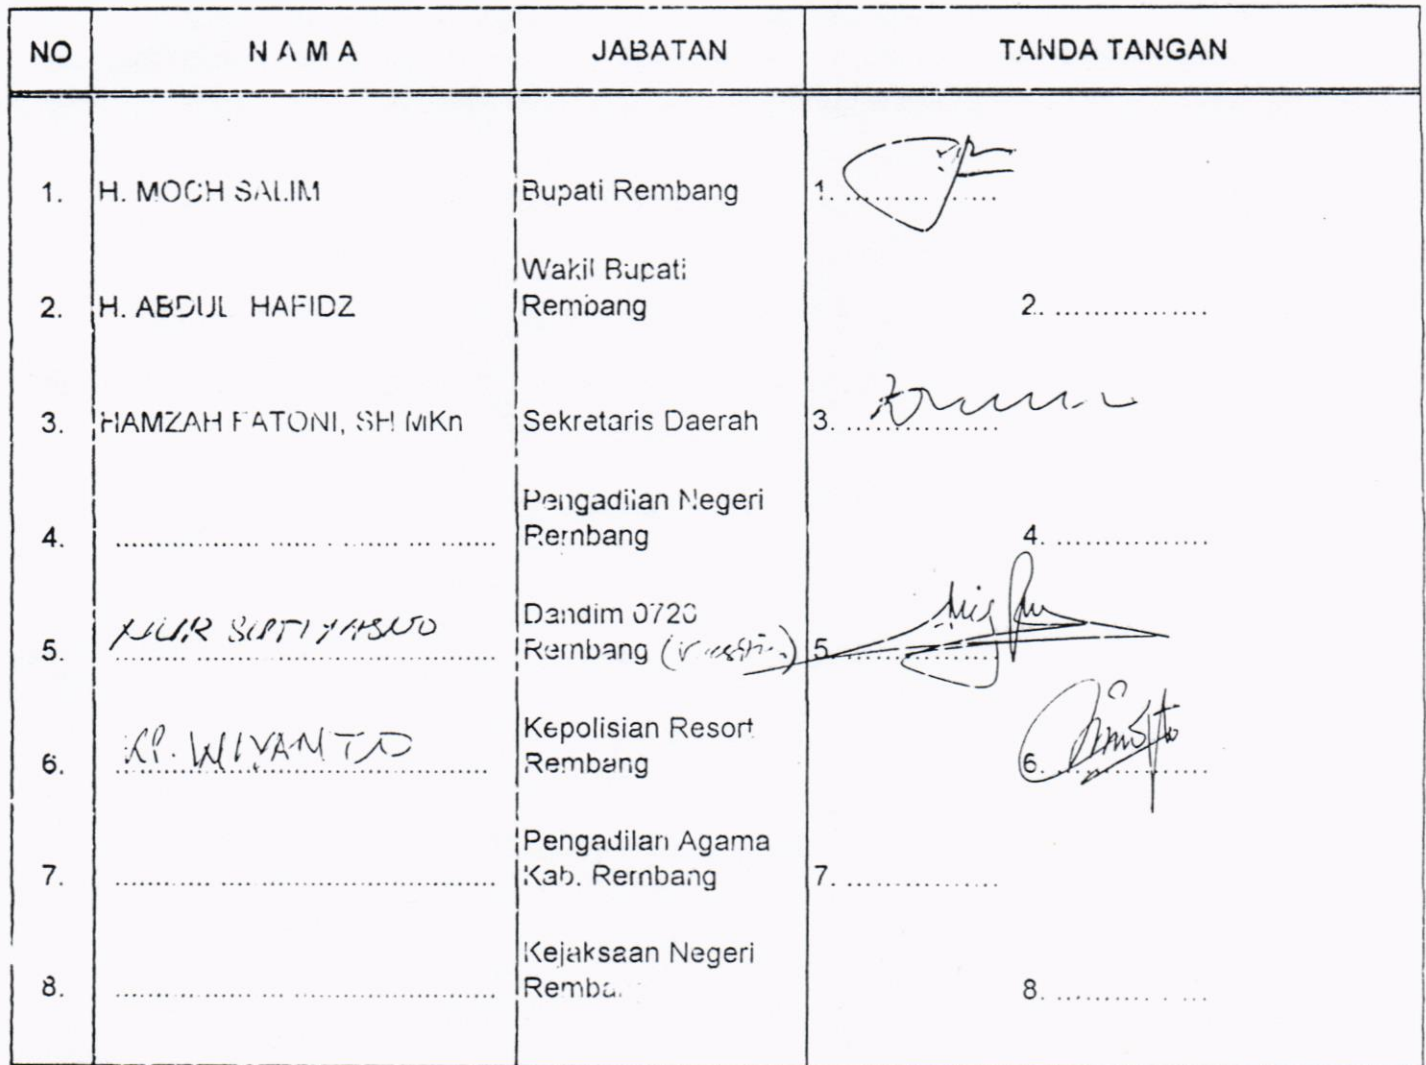 NO NAMA JABATAN TANDA TANGAN
1. H. MOCH SALIM Bupati Rembang 1. ................
Wakil Bupati
2. H. ABDUL HAFIDZ Rembang 2. ................
3. HAMZAH FATONI, SH MKn Sekretaris Daerah 3. ................
Pengadilan Negeri
4. ................ Rembang 4. ................
NUR Dandim 0720
5. ................ Rembang 5. ................
KP. WIYANTO Kepolisian Resort
6. ................ Rembang 6. ................
Pengadilan Agama
7. ................ Kab. Rembang 7. ................
Kejaksaan Negeri
8. ................ Remba 8. ................